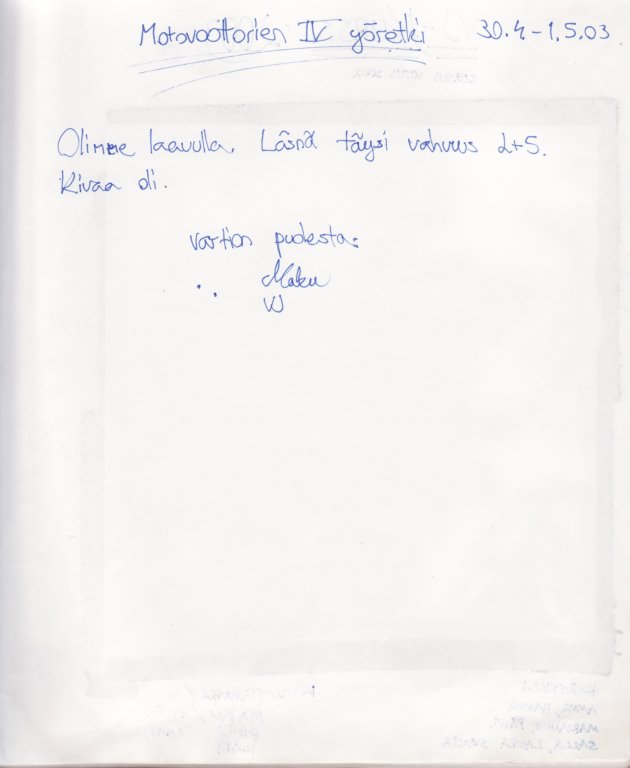 Motovoottorien IV yöretki 30.4.-1.5.03
Olimme laavulla. Läsnä täysi vahvuus 2+5.
Kivaa oli.
vartion puolesta:
Maku
VJ